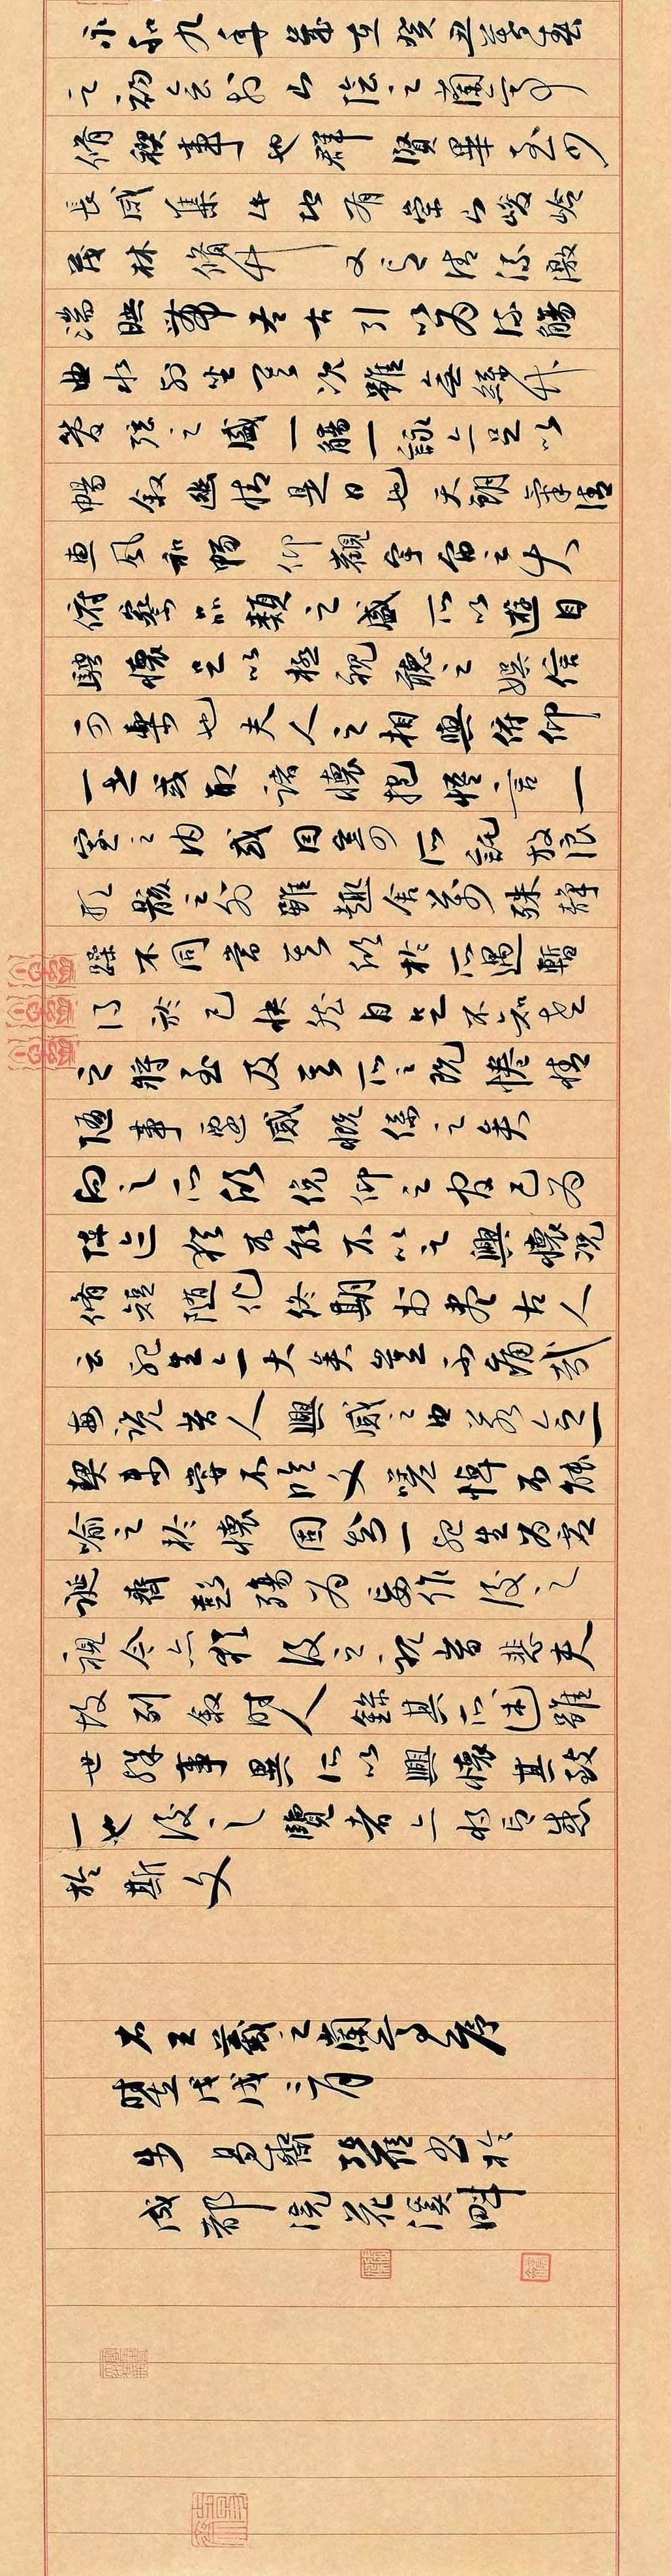 永和九年歲在癸丑暮春
之初會於山陰之蘭亭
脩稧事也群賢畢至少
長咸集此地有崇山峻嶺
茂林脩竹又有清流激
湍暎帶左右引以為流觴
曲水列坐其次雖無絲竹
管弦之盛一觴一詠亦足以
暢敘幽情是日也天朗氣清
惠風和暢仰觀宇宙之大
俯察品類之盛所以遊目
騁懷足以極視聽之娛信
可樂也夫人之相與俯仰
一世或取諸懷抱悟言一
室之內或因寄所託放浪
形骸之外雖趣舍萬殊靜
躁不同當其欣於所遇暫
得於己快然自足不知老
之將至及其所之既惓情
隨事遷感慨係之矣
向之所欣俛仰之間已為
陳迹猶不能不以之興懷況
脩短隨化終期於盡古人
云死生亦大矣豈不痛哉
每覽昔人興感之由若合一
契未嘗不臨文嗟悼不能
喻之於懷固知一死生為虛
誕齊彭殤為妄作後之
視今亦猶今之視昔悲夫
故列敘時人錄其所述雖
世殊事異所以興懷其致
一也後之覽者亦將有感
於斯文
右王羲之蘭亭序
時在戊戌三月
齋書於
成都浣花溪畔